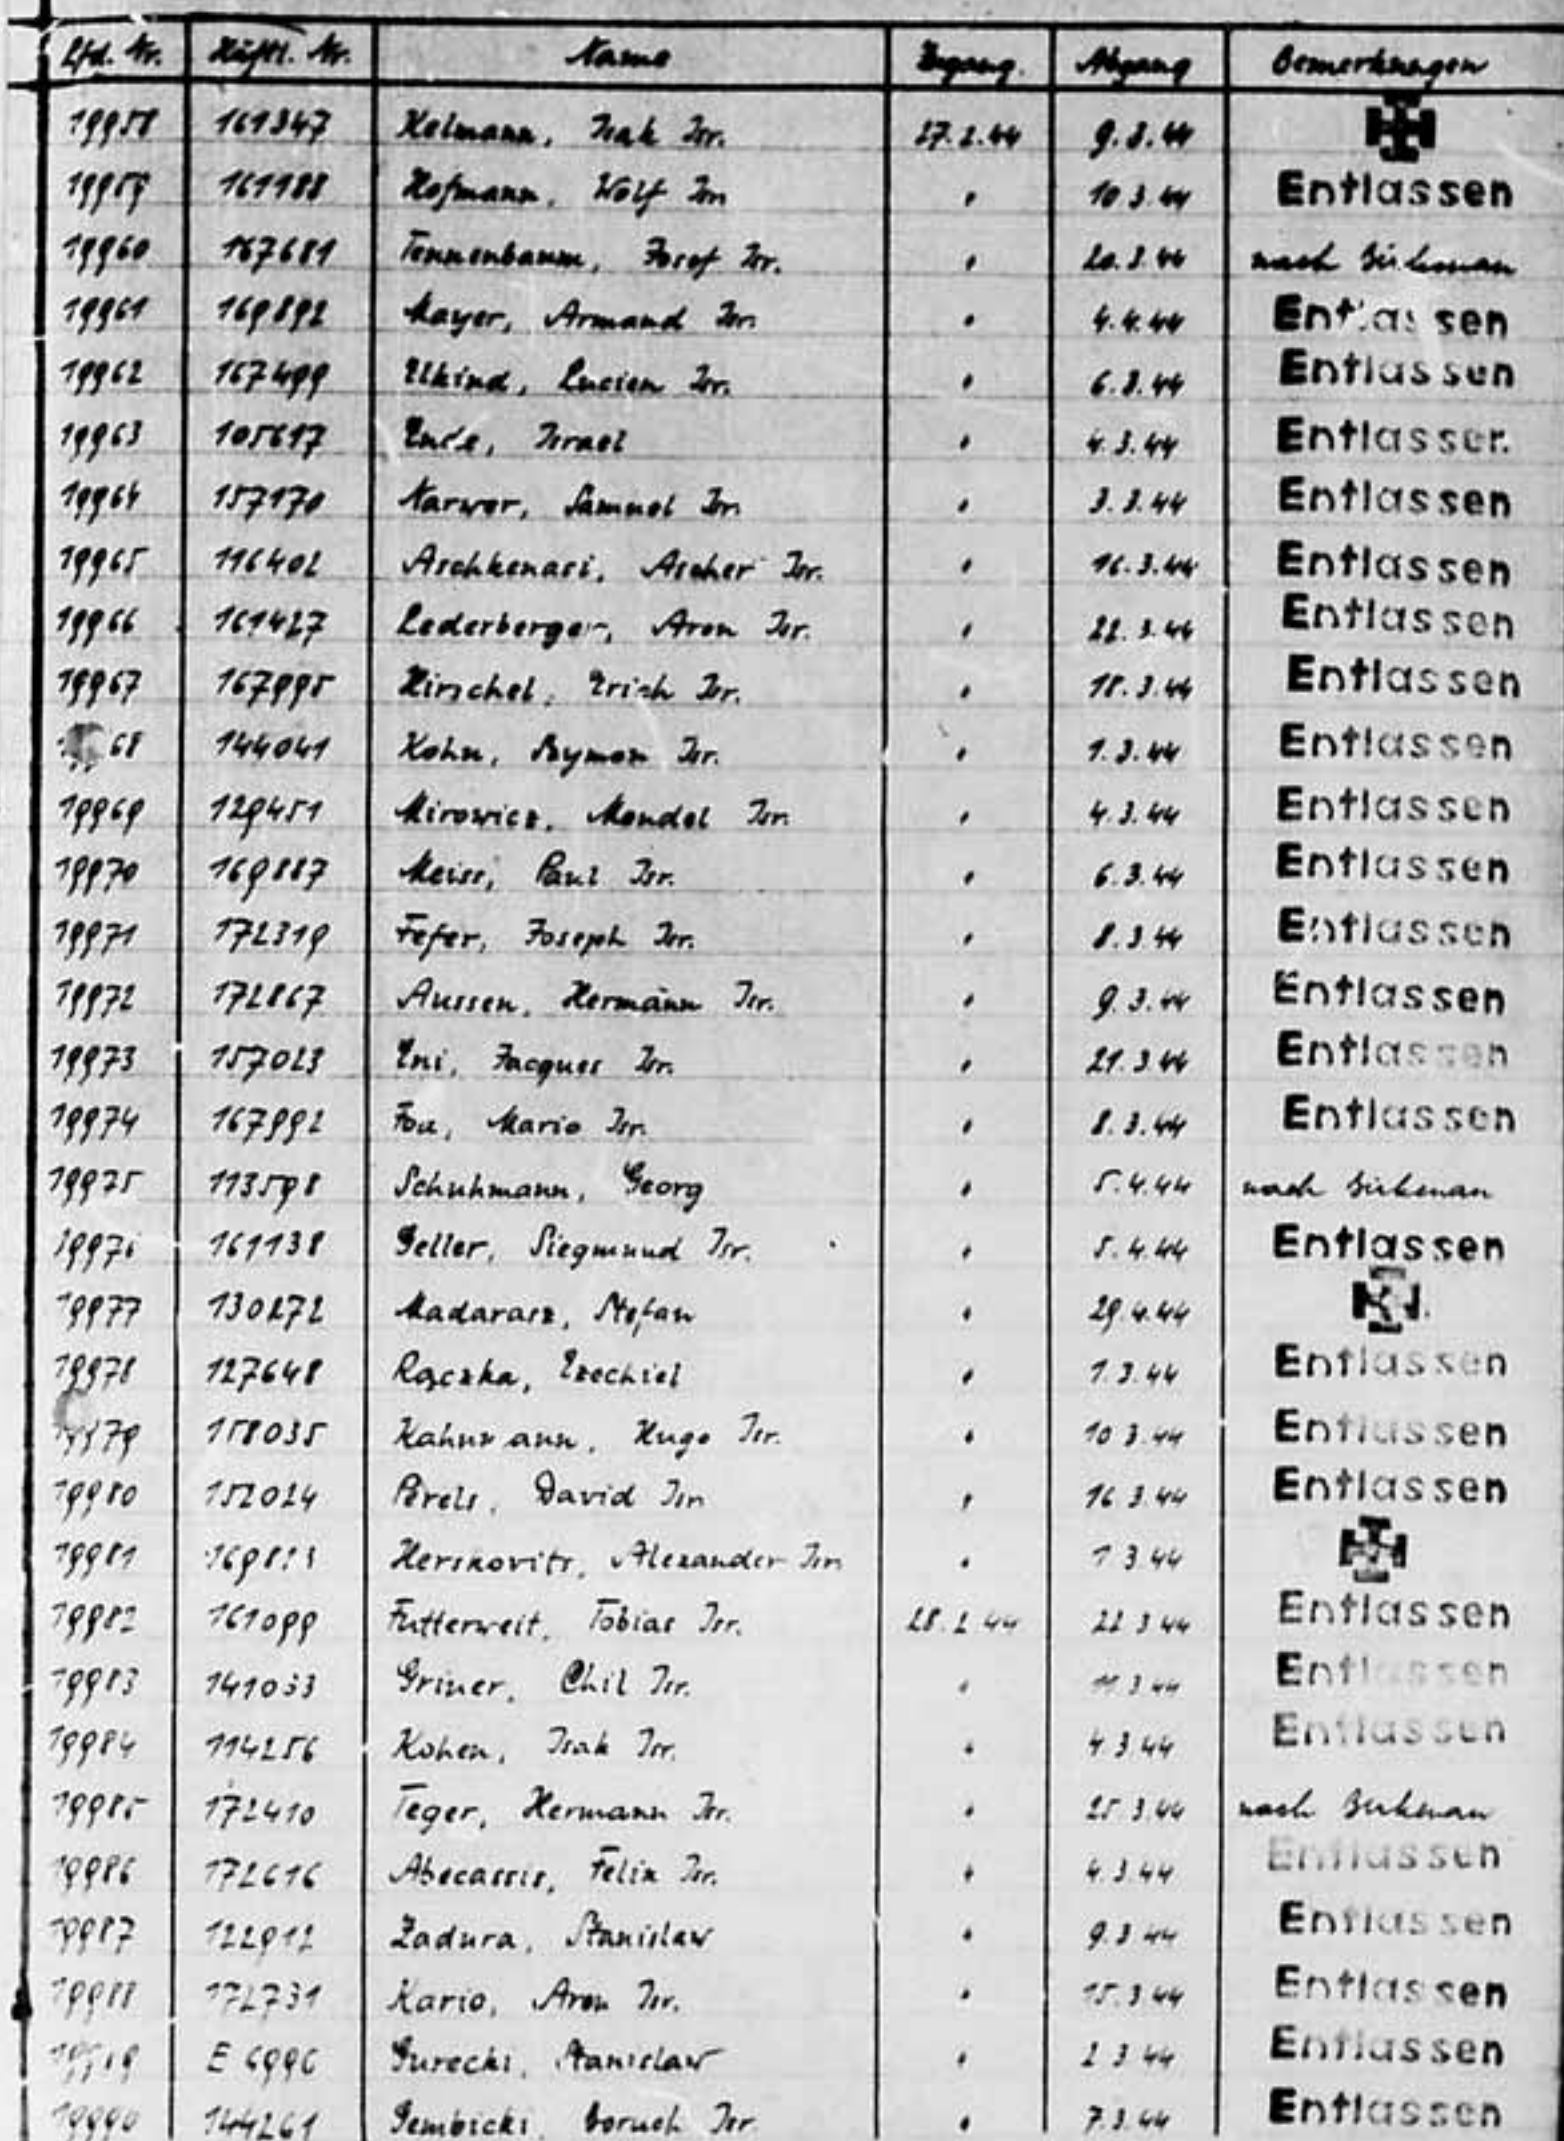 Lfd. Nr. Häftl. Nr. Name Zugang. Abgang Bemerkungen
19958 161347 Helmann, Isak Isr. 27.2.44 9.3.44
19959 161188 Hofmann, Wolf Isr. " 10.3.44 Entlassen
19960 167681 Tennenbaum, Josef Isr. " 20.3.44 nach Birkenau
19961 169892 Mayer, Armand Isr. " 4.4.44 Entlassen
19962 167499 Elkind, Lucien Isr. " 6.3.44 Entlassen
19963 105617 Israel " 4.3.44 Entlassen
19964 157170 Narwor, Samuel Isr. " 3.3.44 Entlassen
19965 116402 Aschkenasi, Ascher Isr. " 16.3.44 Entlassen
19966 161427 Lederberger, Aron Isr. " 22.3.44 Entlassen
19967 167995 Hirschel, Erich Isr. " 18.3.44 Entlassen
68 144041 Kohn, Szymon Isr. " 1.3.44 Entlassen
19969 129451 Mirowicz, Mendel Isr. " 4.3.44 Entlassen
19970 169887 Meiss, Paul Isr. " 6.3.44 Entlassen
19971 172319 Fefer, Joseph Isr. " 8.3.44 Entlassen
19972 172867 Aussen, Hermann Isr. " 9.3.44 Entlassen
19973 157023 Eni, Jacques Isr. " 21.3.44 Entlassen
19974 167992 Mario Isr. " 8.3.44 Entlassen
19975 113598 Schuhmann, Georg " 5.4.44 nach Birkenau
19976 161138 Geller, Siegmund Isr. " 5.4.44 Entlassen
19977 130272 Madarasz, Stefan " 29.4.44
19978 127648 Rączka, Ezechiel " 1.3.44 Entlassen
19979 158035 Kahnmann, Hugo Isr. " 10.3.44 Entlassen
19980 152024 Perels, David Isr. " 16.3.44 Entlassen
19981 Herskovits, Alexander Isr. " 1.3.44
19982 161099 Futterweit, Tobias Isr. 28.2.44 22.3.44 Entlassen
19983 141033 Griner, Chil Isr. " 11.3.44 Entlassen
19984 114256 Kohen, Isak Isr. " 4.3.44 Entlassen
19985 172410 Teger, Hermann Isr. " 25.3.44 nach Birkenau
19986 172616 Abecassis, Felix Isr. " 4.3.44 Entlassen
19987 122912 Zadura, Stanislaw " 9.3.44 Entlassen
19988 172731 Kario, Aron Isr. " 15.3.44 Entlassen
19989 E 6996 Gurecki, Stanislaw " 2.3.44 Entlassen
19990 144261 Gembicki, Boruch Isr. " 7.3.44 Entlassen